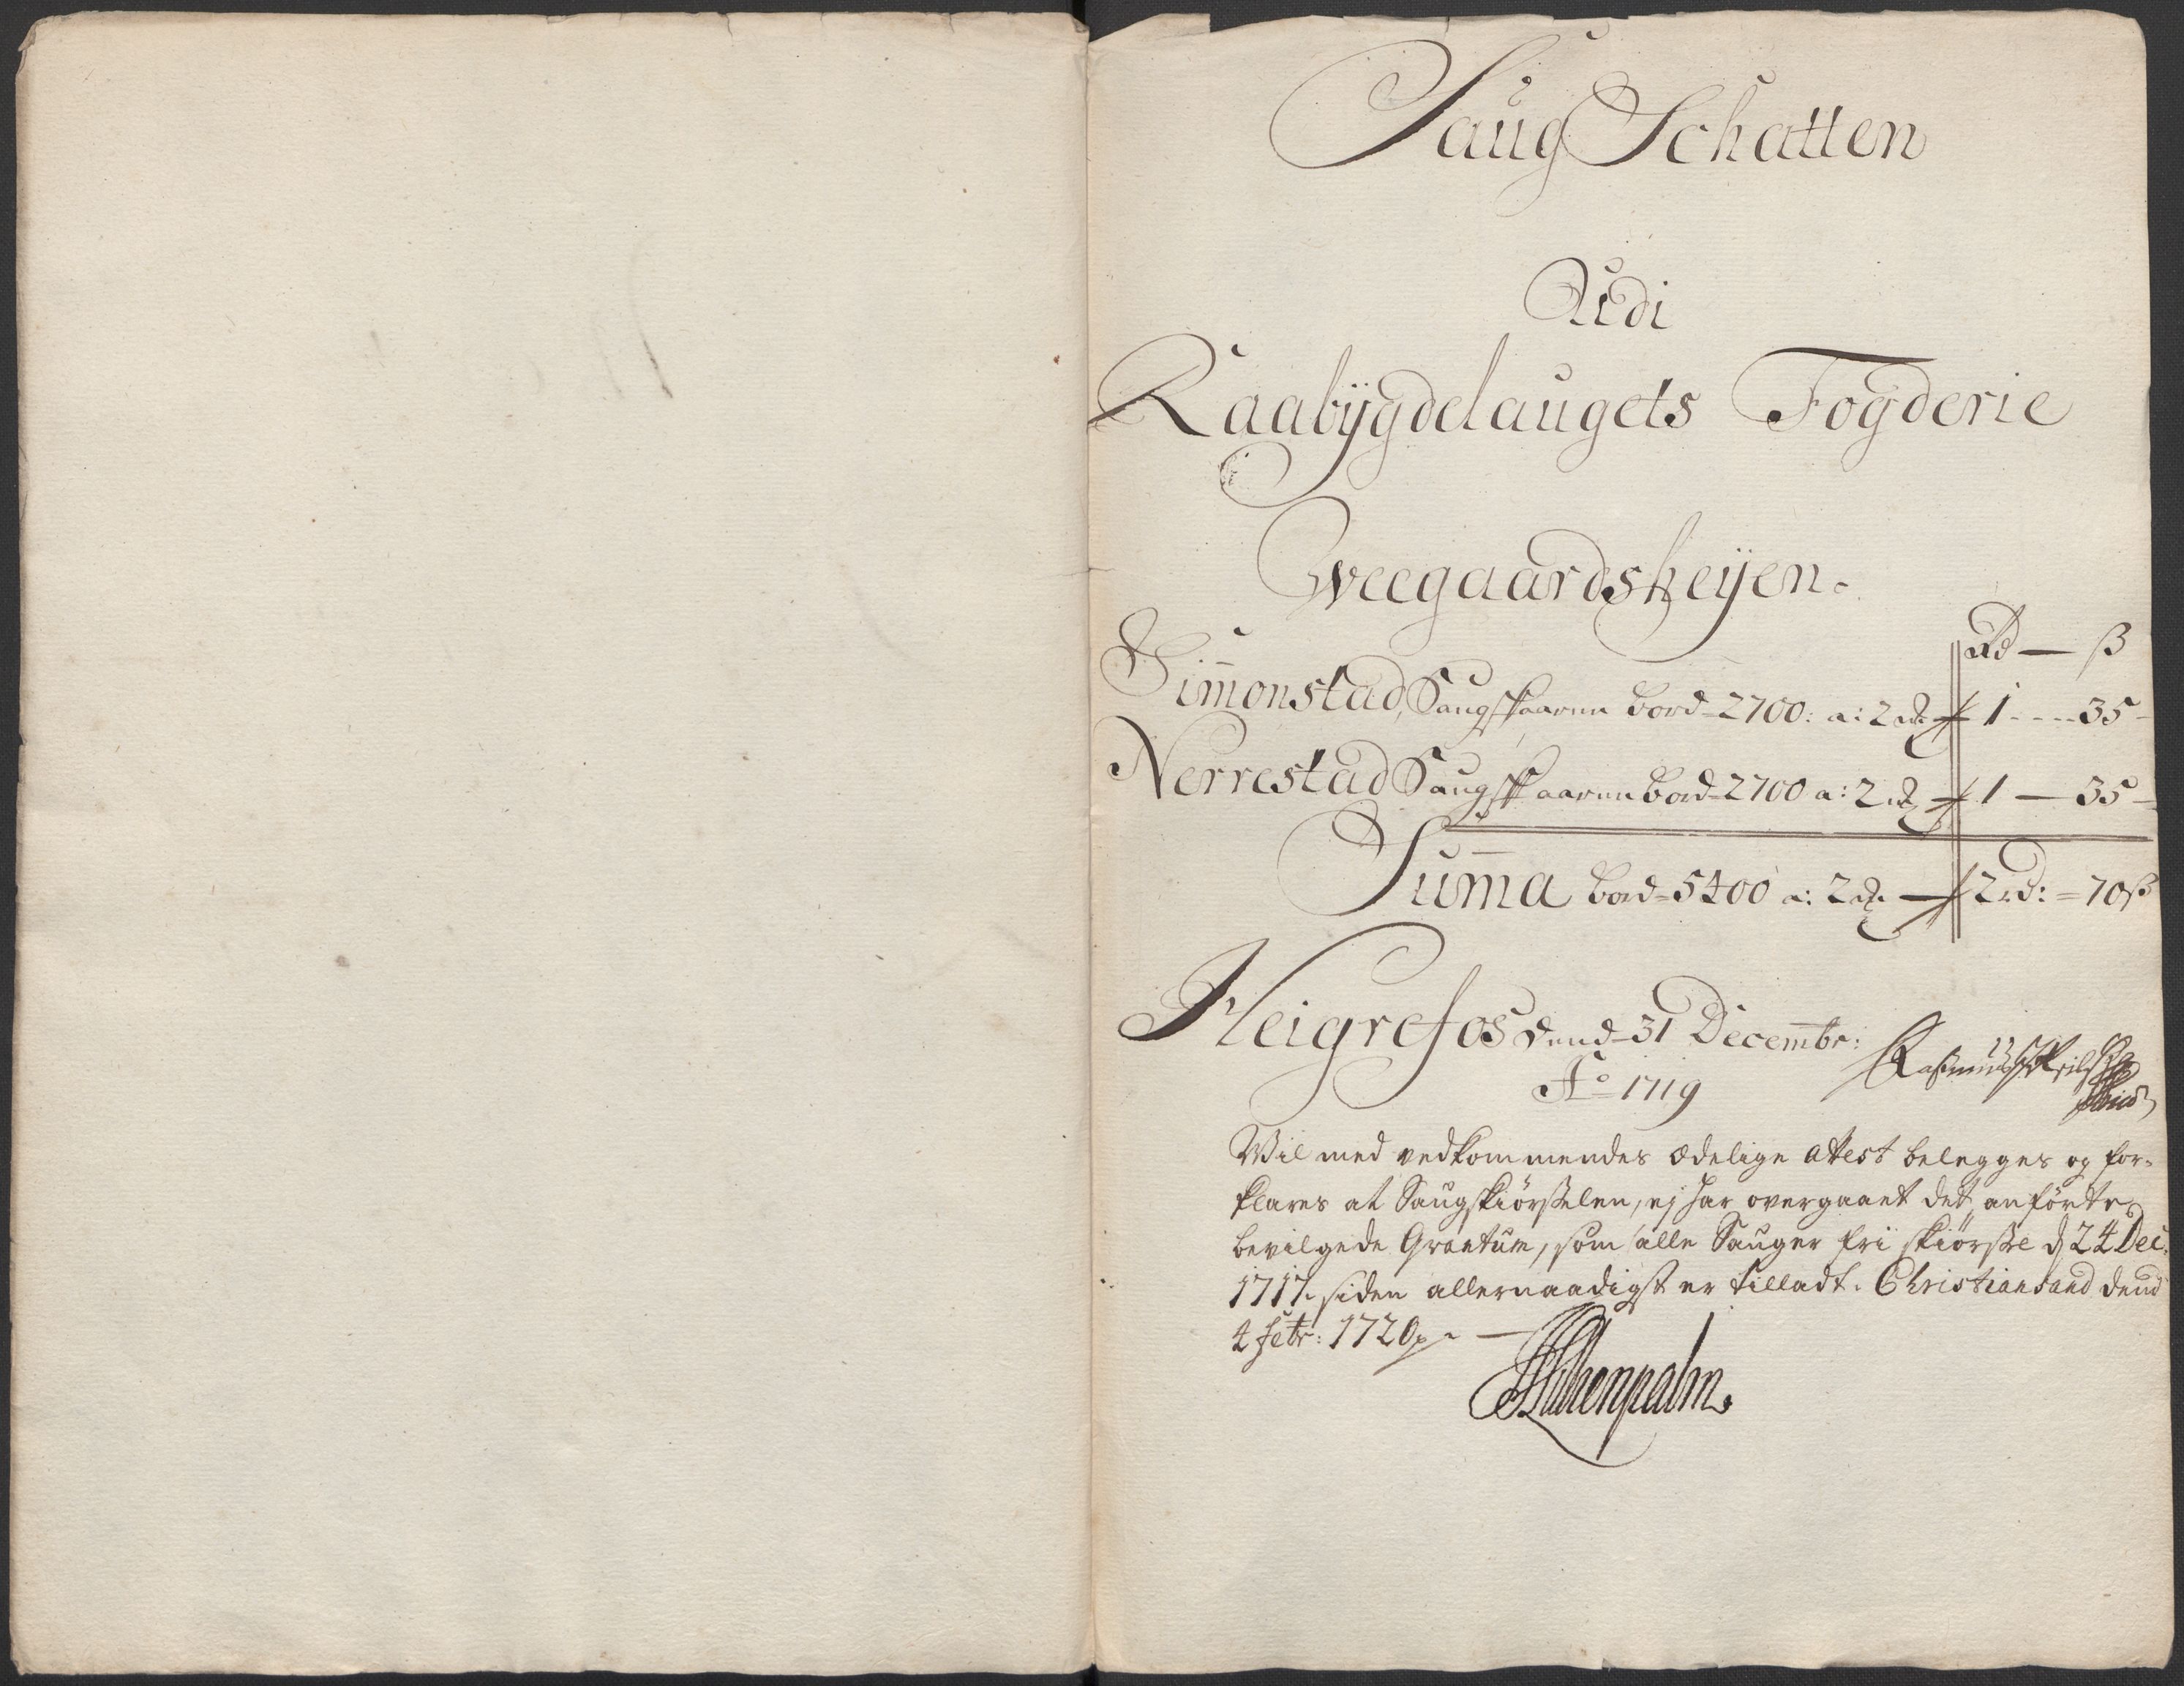 Saug Schatten
Udi
Raabÿgdelaugets Fogderie
Weegaardsheÿen.
Rd — ß
Sim̅onstad, Saug skaaren bord - 2700: a: 2 rd. 1 - - - - 35 -
Nerrestad Saug skaaren bord - 2700 a: 2 rd 1 — 35 -
Sum̅a bord - 5400 a: 2 rd. — 2 rd: = 70 ß
Heigrefos dend - 31 Decembr:
Ao 1719
Rasmus
Vil med vedkommendes ædelige attest belegges og for-
klares at Saugskiørselen, ej har overgaaet det anförte
bevilgede Qvantum, som alle Sauger fri skiørsle d 24 Dec.
1717. siden allernaadigst er tilladt. Christiansand dend
4 febr: 1720